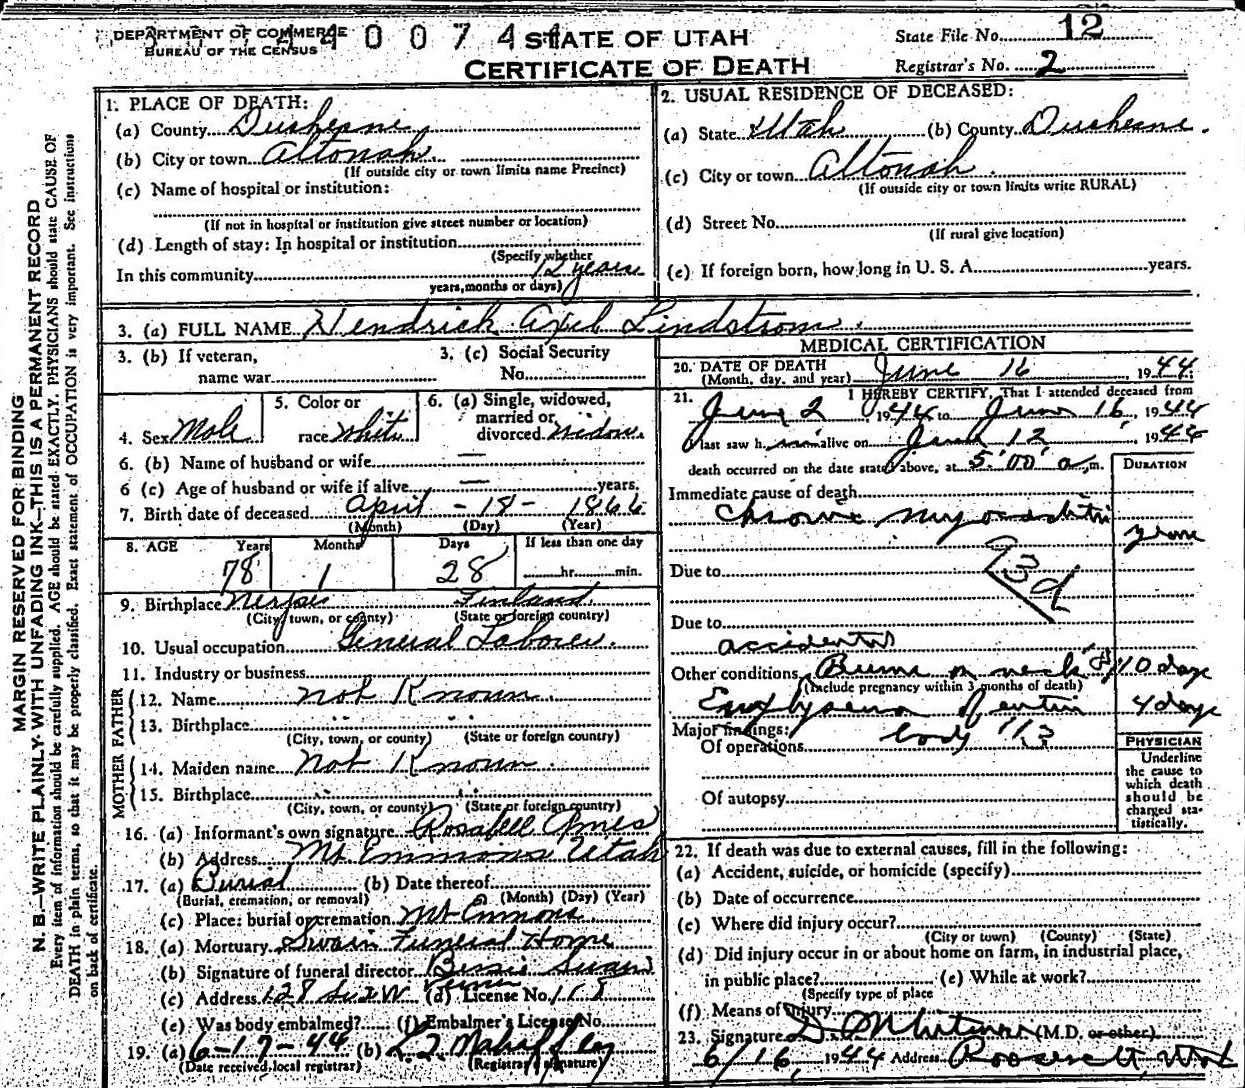 DEPARTMENT OF COMMERCE
BUREAU OF THE CENSUS
4 4 0 0 7 4 4
STATE OF UTAH
CERTIFICATE OF DEATH
State File No. 12
Registrar's No. 2
MARGIN RESERVED FOR BINDING
N. B.—WRITE PLAINLY WITH UNFADING INK—THIS IS A PERMANENT RECORD
Every item of information should be carefully supplied. AGE should be stated EXACTLY. PHYSICIANS should state CAUSE OF
DEATH in plain terms, so that it may be properly classified. Exact statement of OCCUPATION is very important. See instructions
on back of certificate.
1. PLACE OF DEATH:
(a) County Duchesne
(b) City or town Altonah
(If outside city or town limits name Precinct)
(c) Name of hospital or institution:
(If not in hospital or institution give street number or location)
(d) Length of stay: In hospital or institution
(Specify whether
In this community 12 years
years, months or days)
2. USUAL RESIDENCE OF DECEASED:
(a) State Utah (b) County Duchesne.
(c) City or town Altonah.
(If outside city or town limits write RURAL)
(d) Street No.
(If rural give location)
(e) If foreign born, how long in U. S. A. years.
3. (a) FULL NAME Hendrick Axel Lindstrom.
3. (b) If veteran,
name war
3. (c) Social Security
No.
4. Sex Male
5. Color or
race white
6. (a) Single, widowed,
married or
divorced widow.
6. (b) Name of husband or wife —
6 (c) Age of husband or wife if alive — years.
7. Birth date of deceased April - 18 - 1866
(Month) (Day) (Year)
8. AGE Years Months Days If less than one day
78 1 28 hr. min.
9. Birthplace Finland.
(City, town, or county) (State or foreign country)
10. Usual occupation General Laborer.
11. Industry or business
FATHER
12. Name not Known
13. Birthplace
(City, town, or county) (State or foreign country)
MOTHER
14. Maiden name not Known
15. Birthplace
(City, town, or county) (State or foreign country)
16. (a) Informant's own signature Rosabell Ames
(b) Address Mt Emmons Utah
17. (a) Burial (b) Date thereof
(Burial, cremation, or removal) (Month) (Day) (Year)
(c) Place: burial or cremation Mt Emmons
18. (a) Mortuary Swain Funeral Home
(b) Signature of funeral director
(c) Address 128 (d) License No.
(e) Was body embalmed? (f) Embalmer's License No.
19. (a) 6-17-44 (b)
(Date received local registrar) (Registrar's signature)
MEDICAL CERTIFICATION
20. DATE OF DEATH
(Month, day, and year) June 16, 1944
21. I HEREBY CERTIFY, That I attended deceased from
June 2, 1944 to June 16, 1944
I last saw h im alive on June 12, 1944
death occurred on the date stated above, at 5:00 a. m.
DURATION
Immediate cause of death
Chronic myocarditis
years
Due to
93d
Due to
accidental
Other conditions Burns on neck & 10 days
(Include pregnancy within 3 months of death)
Emphysema of entire 4 days
body
Major findings:
Of operations
Of autopsy
PHYSICIAN
Underline
the cause to
which death
should be
charged sta-
tistically.
22. If death was due to external causes, fill in the following:
(a) Accident, suicide, or homicide (specify)
(b) Date of occurrence
(c) Where did injury occur?
(City or town) (County) (State)
(d) Did injury occur in or about home on farm, in industrial place,
in public place? (e) While at work?
(Specify type of place
(f) Means of Injury
23. Signature (M.D. or other)
6/16, 1944 Address Roosevelt, Utah